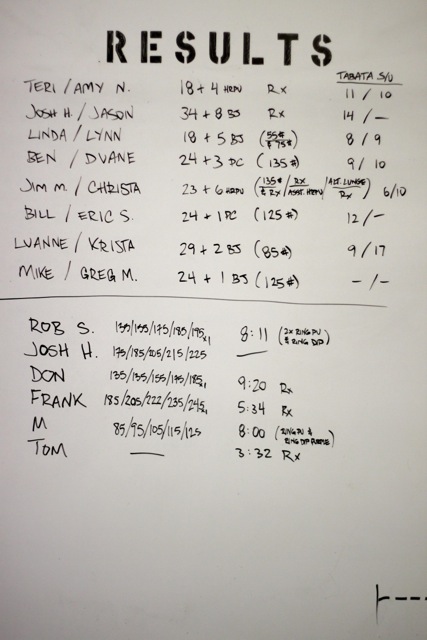 RESULTS
TABATA S/U
TERI / AMY N. 18 + 4 HRPU Rx 11 / 10
JOSH H. / JASON 34 + 8 BJ Rx 14 / -
LINDA / LYNN 18 + 5 BJ (55# & 75#) 8 / 9
BEN / DUANE 24 + 3 PC (135#) 9 / 10
JIM M. / CHRISTA 23 + 6 HRPU (135# & Rx / Rx ASST. HRPU / ALT. LUNGE Rx) 6/10
BILL / ERIC S. 24 + 1 PC (125#) 12 / -
LUANNE / KRISTA 29 + 2 BJ (85#) 9 / 17
MIKE / GREG M. 24 + 1 BJ (125#) - / -
ROB S. 135/155/175/185/195x1 8:11 (2x RING PU & RING DIP)
JOSH H. 175/185/205/215/225 —
DON 135/135/155/175/185x1 9:20 Rx
FRANK 185/205/222/235/245x1 5:34 Rx
M 85/95/105/115/125 8:00 (RING PU & RING DIP PURPLE)
TOM — 3:32 Rx